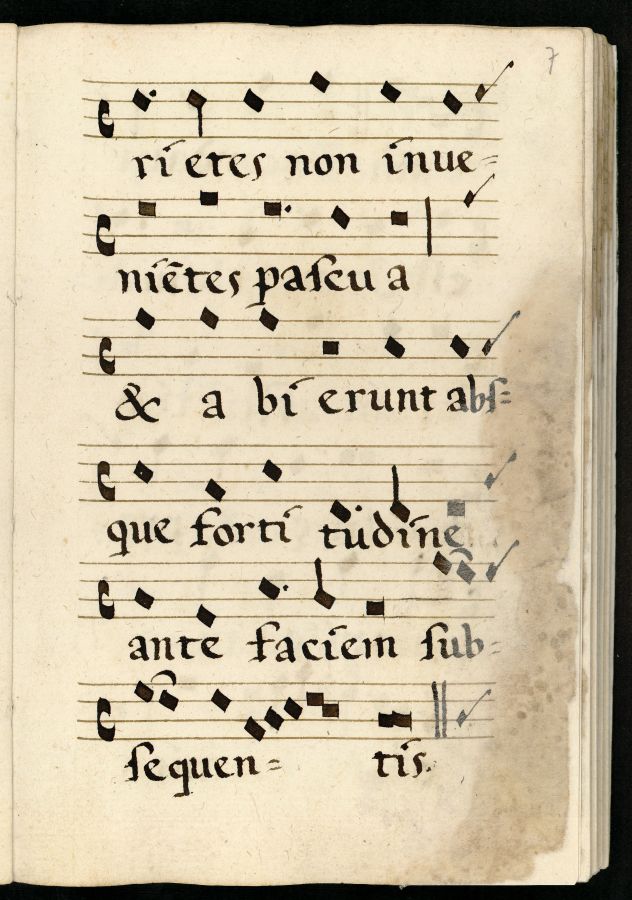 7
rietes non inue=
niētes pascu a
& a bi erunt abs=
que forti tudine
ante faciem sub=
sequen= tis.